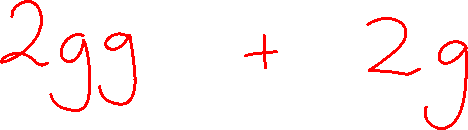 2gg + 2g